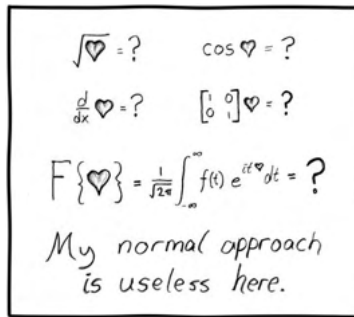 √♥ = ? cos ♥ = ?
d/dx ♥ = ? [1 0 0 1] ♥ = ?
F{♥} = 1/√2π ∫_{-∞}^{∞} f(t) e^{it♥} dt = ?
My normal approach
is useless here.